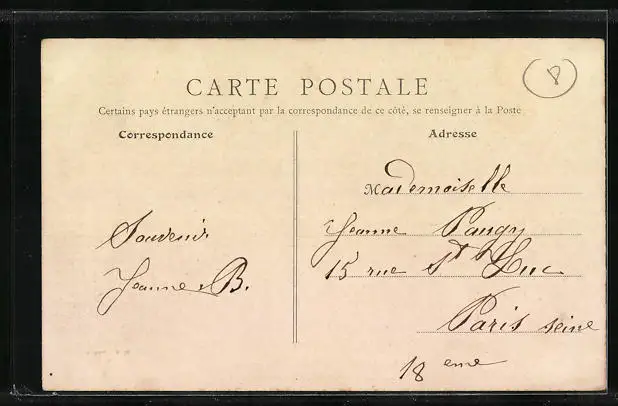 CARTE POSTALE
8
Certains pays étrangers n'acceptant par la correspondance de ce côté, se renseigner à la Poste
Correspondance
Adresse
Souvenir
Jeanne B.
Mademoiselle
Jeanne Paugy
15 rue St Luc
Paris seine
18 eme